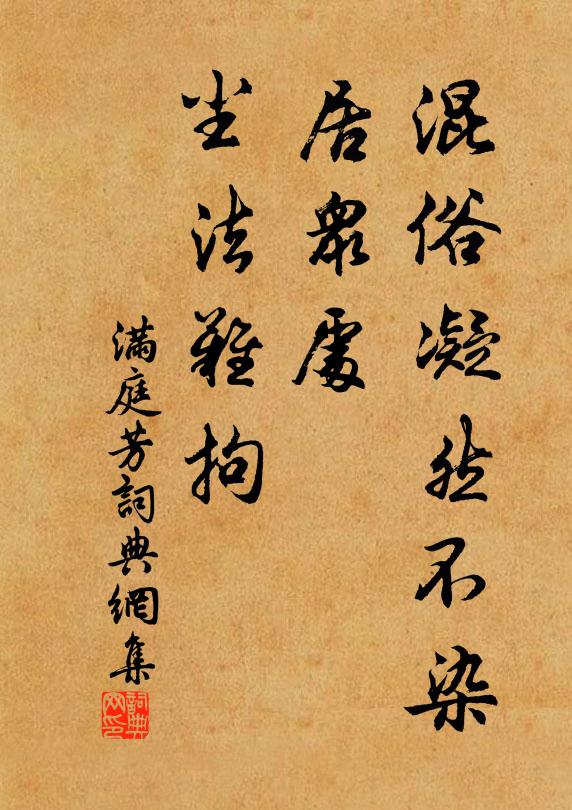 混俗凝然不染
居衆處
坐法難拘
滿庭芳詞典網集
詞典
网印